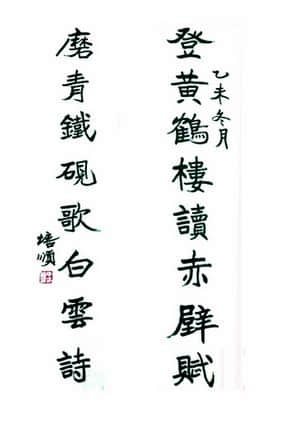 乙未冬月
登黄鶴樓讀赤壁賦
磨青鐵硯歌白雲詩
培順